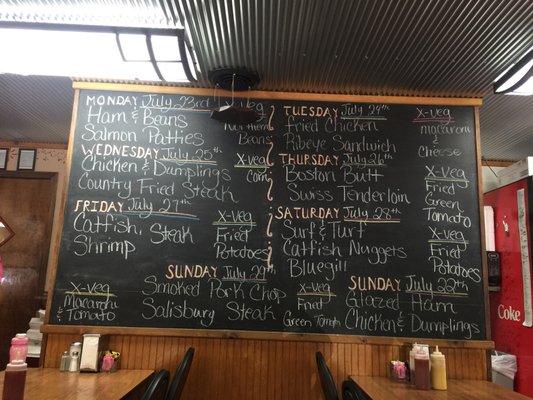 MONDAY July 23rd
Ham & Beans
Salmon Patties
X-Veg
Northern
Beans
WEDNESDAY July 25th
Chicken & Dumplings
Country Fried Steak
X-Veg
Corn
FRIDAY July 27th
Catfish, Steak
Shrimp
X-Veg
Fried
Potatoes
SUNDAY July 29th
Smoked Pork Chop
Salisbury Steak
X-Veg
Macaroni
Tomato
TUESDAY July 24th
Fried Chicken
Ribeye Sandwich
X-Veg
Macaroni
&
Cheese
THURSDAY July 26th
Boston Butt
Swiss Tenderloin
X-Veg
Fried
Green
Tomato
SATURDAY July 28th
Surf & Turf
Catfish Nuggets
Bluegill
X-Veg
Fried
Potatoes
SUNDAY July 22nd
Glazed Ham
Chicken & Dumplings
X-Veg
Fried
Green Tomato
Coke